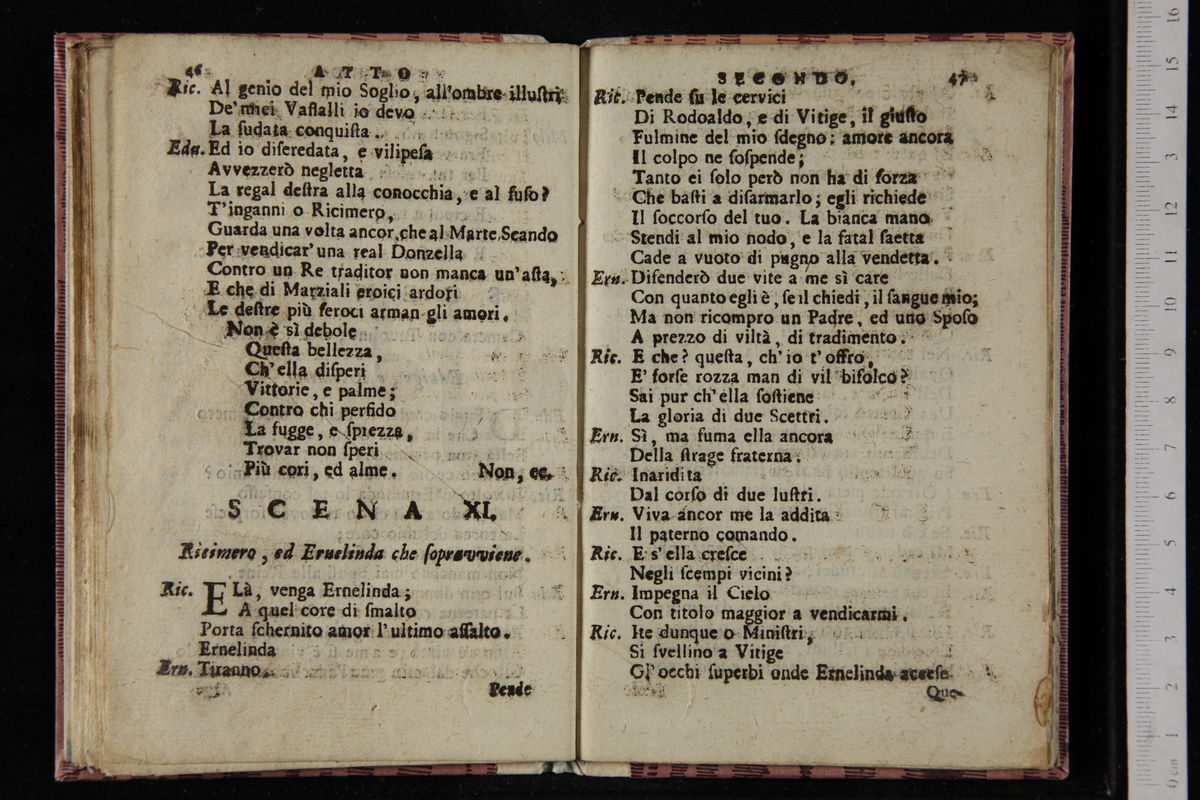 46 ATTO
Ric. Al genio del mio Soglio, all'ombre illuſtri
De' miei Vaſſalli io devo
La ſudata conquiſta.
Edu. Ed io diſeredata, e vilipeſa
Avvezzerò negletta
La regal deſtra alla conocchia, e al fuſo?
T'inganni o Ricimero,
Guarda una volta ancor, che al Marte Scando
Per vendicar' una real Donzella
Contro un Re traditor non manca un'aſta,
E che di Marziali eroici ardori
Le deſtre più feroci arman gli amori.
Non è sì debole
Queſta bellezza,
Ch'ella diſperi
Vittorie, e palme;
Contro chi perfido
La fugge, e ſprezza,
Trovar non ſperi
Più cori, ed alme. Non, ec.
SCENA XI.
Ricimero, ed Ernelinda che ſopravviene.
Ric. ELà, venga Ernelinda;
A quel core di ſmalto
Porta ſchernito amor l'ultimo aſſalto.
Ernelinda
Ern. Tiranno.
Pende
SECONDO. 47
Ric. Pende ſu le cervici
Di Rodoaldo, e di Vitige, il giuſto
Fulmine del mio ſdegno: amore ancora
Il colpo ne ſoſpende;
Tanto ei ſolo però non ha di forza
Che baſti a diſarmarlo; egli richiede
Il ſoccorſo del tuo. La bianca mano
Stendi al mio nodo, e la fatal ſaetta
Cade a vuoto di pugno alla vendetta.
Ern. Difenderò due vite a me sì care
Con quanto egli è, ſe il chiedi, il ſangue mio;
Ma non ricompro un Padre, ed uno Spoſo
A prezzo di viltà, di tradimento.
Ric. E che? queſta, ch'io t'offro,
E' forſe rozza man di vil bifolco?
Sai pur ch'ella ſoſtiene
La gloria di due Scettri.
Ern. Sì, ma fuma ella ancora
Della ſtrage fraterna.
Ric. Inaridita
Dal corſo di due luſtri.
Ern. Viva ancor me la addita
Il paterno comando.
Ric. E s'ella creſce
Negli ſcempi vicini?
Ern. Impegna il Cielo
Con titolo maggior a vendicarmi.
Ric. Ite dunque o Miniſtri,
Si ſvellino a Vitige
Gl'occhi ſuperbi onde Ernelinda acceſe
Que-